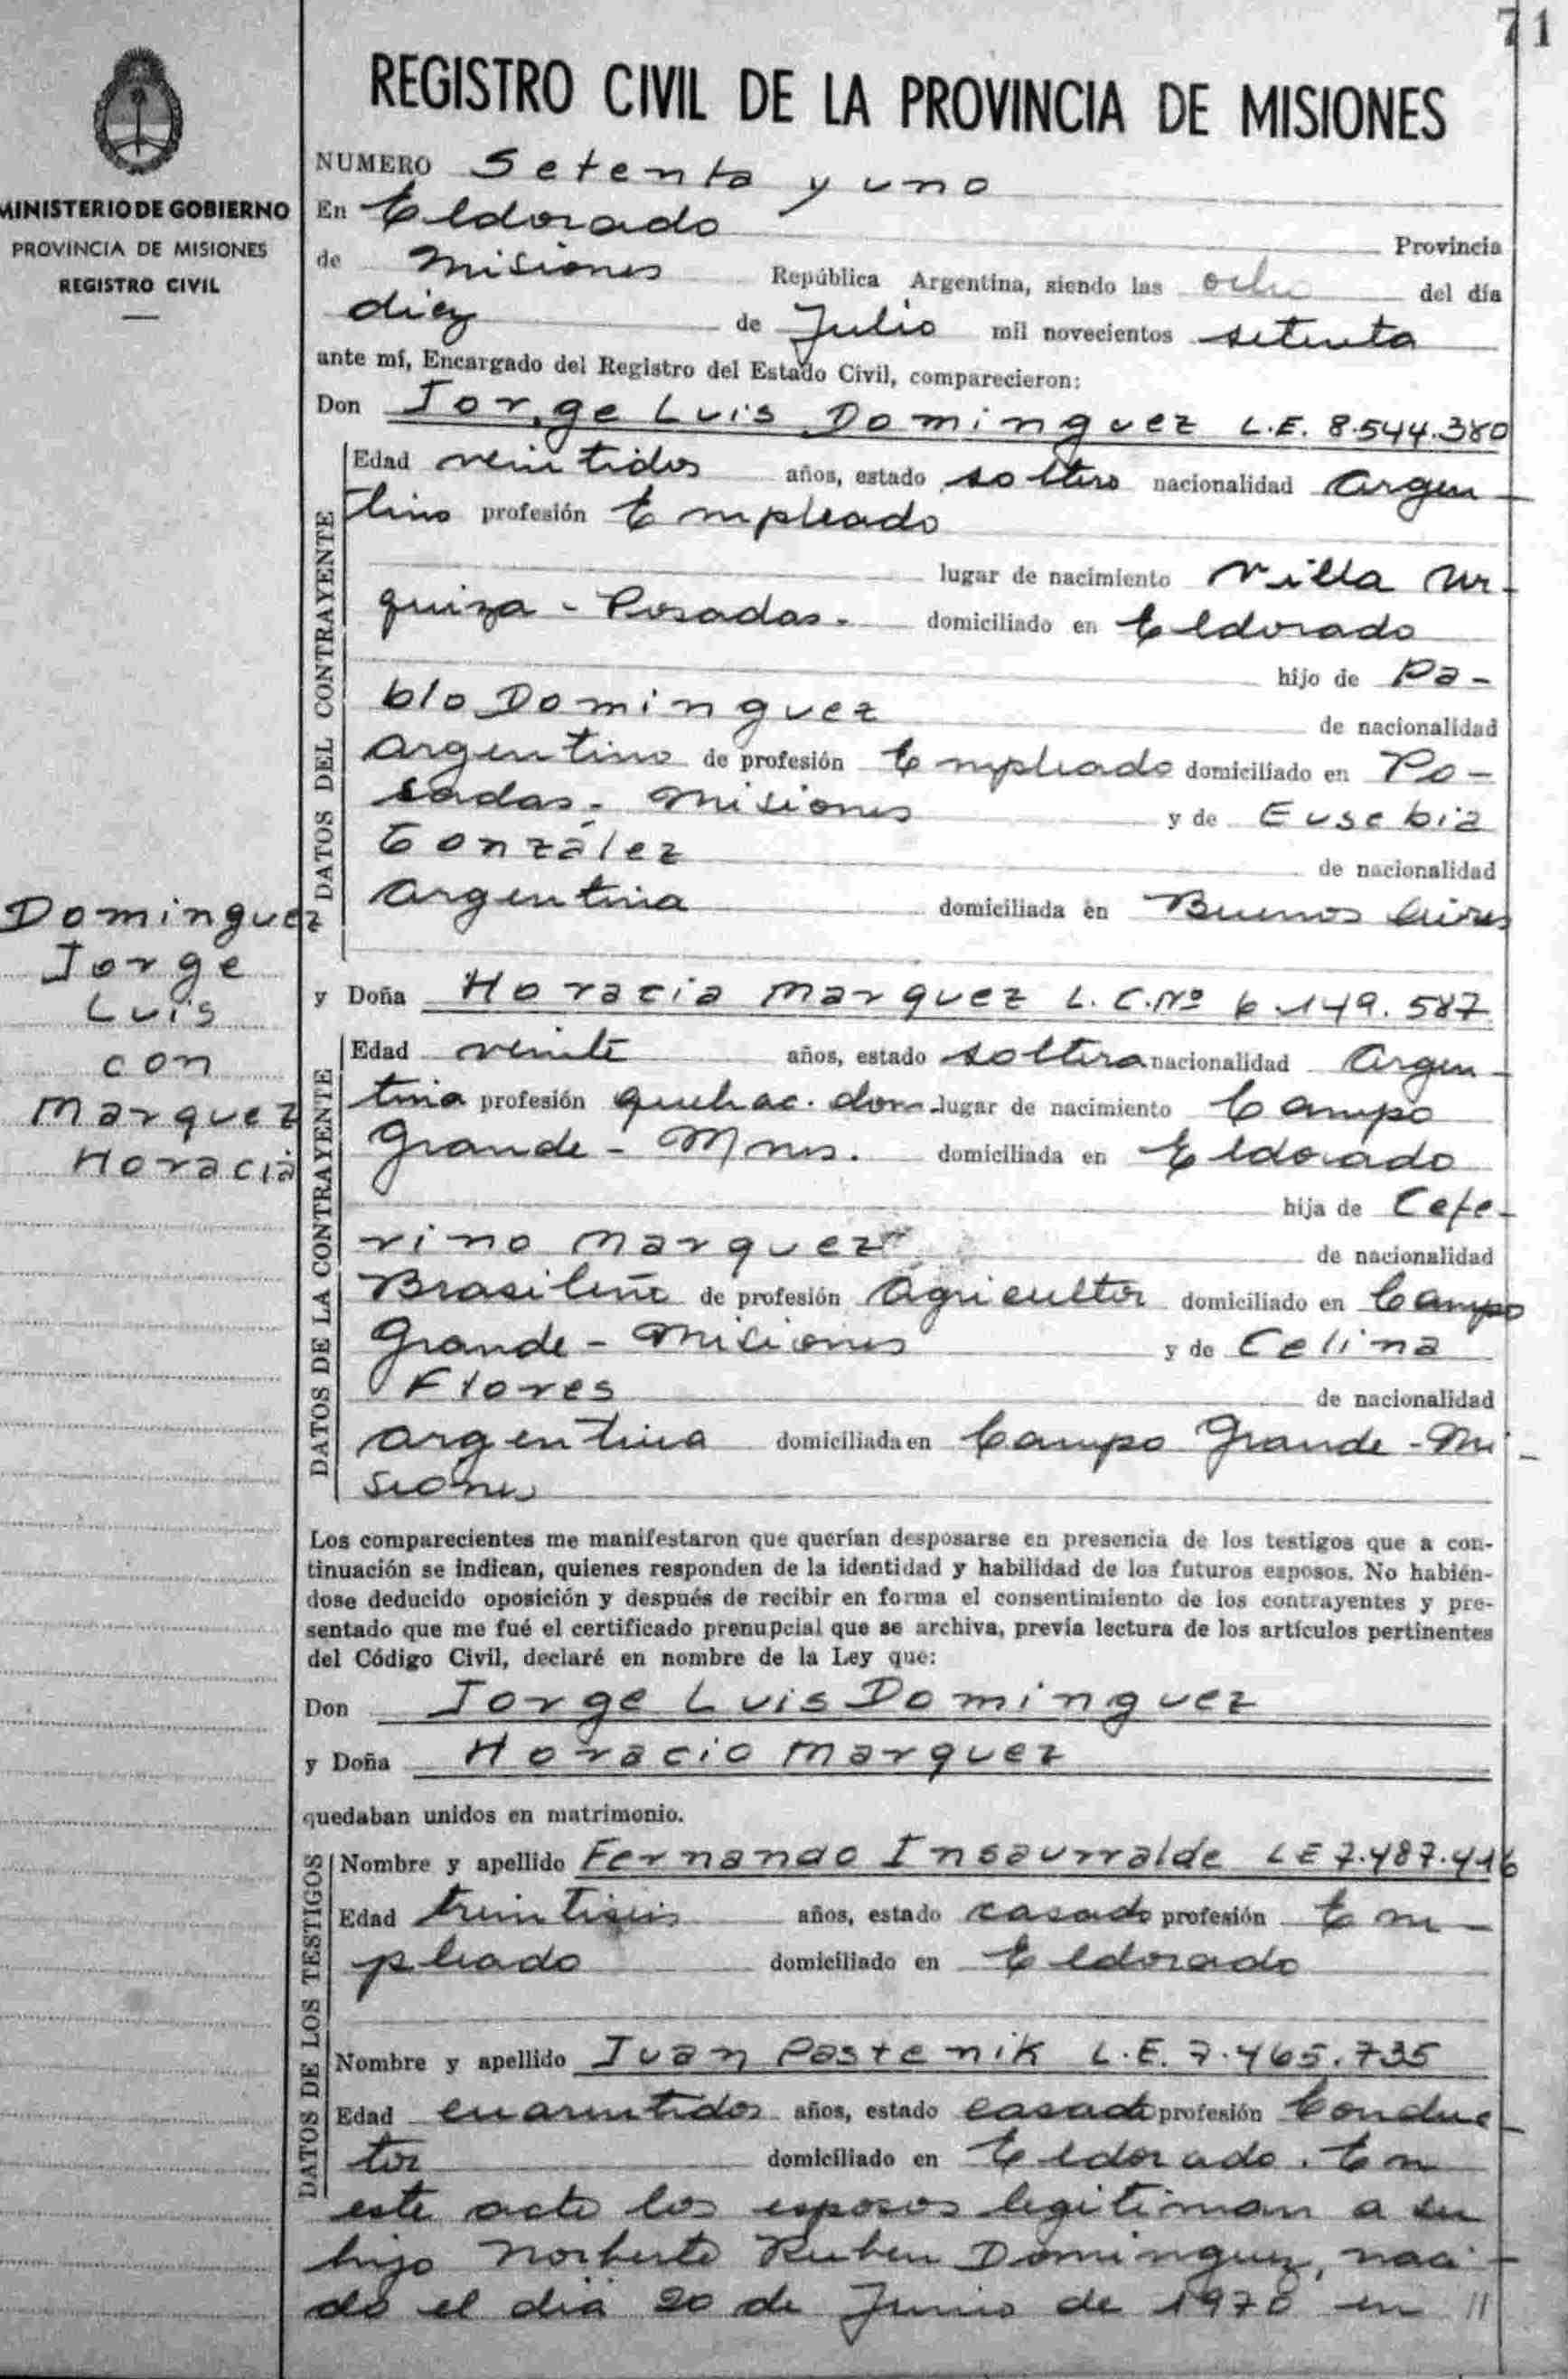 71
REGISTRO CIVIL DE LA PROVINCIA DE MISIONES
MINISTERIO DE GOBIERNO
PROVINCIA DE MISIONES
REGISTRO CIVIL
NUMERO Setenta y uno
En Eldorado Provincia
de Misiones República Argentina, siendo las ocho del día
diez de Julio mil novecientos setenta
ante mí, Encargado del Registro del Estado Civil, comparecieron:
Don Jorge Luis Dominguez L.E. 8.544.380
DATOS DEL CONTRAYENTE
Edad veintidos años, estado soltero nacionalidad Argen-
tino profesión Empleado
lugar de nacimiento Villa Ur-
quiza - Posadas. domiciliado en Eldorado
hijo de Pa-
blo Dominguez de nacionalidad
Argentino de profesión Empleado domiciliado en Po-
sadas. Misiones y de Eusebia
González de nacionalidad
Argentina domiciliada en Buenos Aires
Dominguez
Jorge
Luis
con
Marquez
Horacia
y Doña Horacia Marquez L.C.Nº 6.149.587
DATOS DE LA CONTRAYENTE
Edad veinte años, estado soltera nacionalidad Argen-
tina profesión quehac. dom. lugar de nacimiento Campo
Grande - Mnes. domiciliada en Eldorado
hija de Cefe-
rino Marquez de nacionalidad
Brasileña de profesión Agricultor domiciliado en Campo
Grande - Misiones y de Celina
Flores de nacionalidad
Argentina domiciliada en Campo Grande - Mi-
siones
Los comparecientes me manifestaron que querían desposarse en presencia de los testigos que a con-
tinuación se indican, quienes responden de la identidad y habilidad de los futuros esposos. No habién-
dose deducido oposición y después de recibir en forma el consentimiento de los contrayentes y pre-
sentado que me fué el certificado prenupcial que se archiva, previa lectura de los artículos pertinentes
del Código Civil, declaré en nombre de la Ley que:
Don Jorge Luis Dominguez
y Doña Horacio Marquez
quedaban unidos en matrimonio.
DATOS DE LOS TESTIGOS
Nombre y apellido Fernando Insaurralde LE 7.487.416
Edad treintiseis años, estado casado profesión Em-
pleado domiciliado en Eldorado
Nombre y apellido Juan Pastenik L.E. 7.465.735
Edad cuarentidos años, estado casado profesión Conduc-
tor domiciliado en Eldorado. En
este acto los esposos legitiman a su
hijo Norberto Ruben Dominguez, naci-
do el dia 20 de Junio de 1970 en //